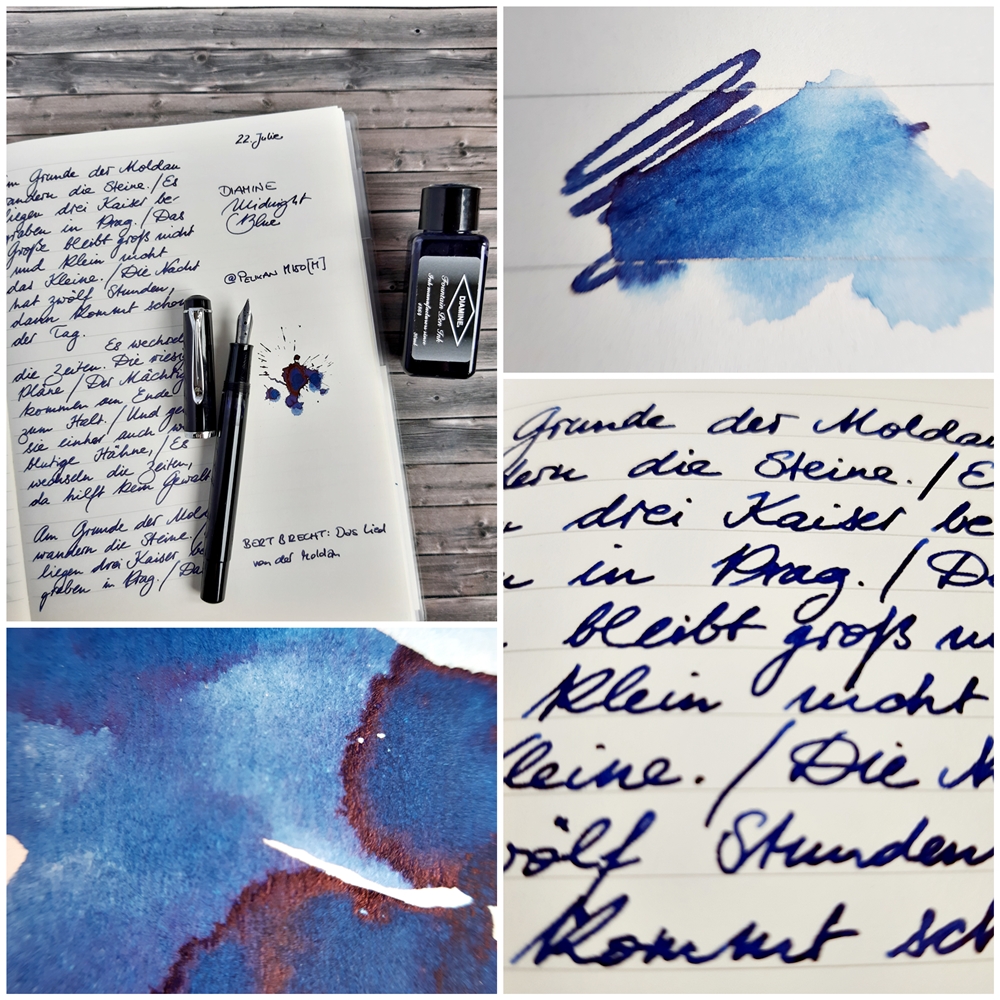 22. Julie
m Grunde der Moldau
andern die Steine. / Es
liegen drei Kaiser be-
graben in Prag. / Das
Große bleibt groß nicht
und klein nicht
das Kleine. / Die Nacht
hat zwölf Stunden,
dann kommt schon
der Tag.
Es wechsel
die Zeiten. Die riesi
Pläne / Der Mächti
kommen am Ende
zum Halt. / Und ge
sie einher auch w
blutige Hähne, / Es
wechseln die Zeiten,
da hilft kein Gewalt
Am Grunde der Mold
wandern die Steine. /
liegen drei Kaiser be
graben in Prag. / Da
DIAMINE
Midnight
Blue
@PELIKAN M150 [M]
BERT BRECHT: Das Lied
von der Moldau
DIAMINE
Fountain Pen Ink
Ink manufacturers since
1864
Grunde der Moldau
dern die Steine. / E
drei Kaiser be
in Prag. / Da
bleibt groß n
klein nicht
leine. / Die N
wölf Stunden
kommt sch